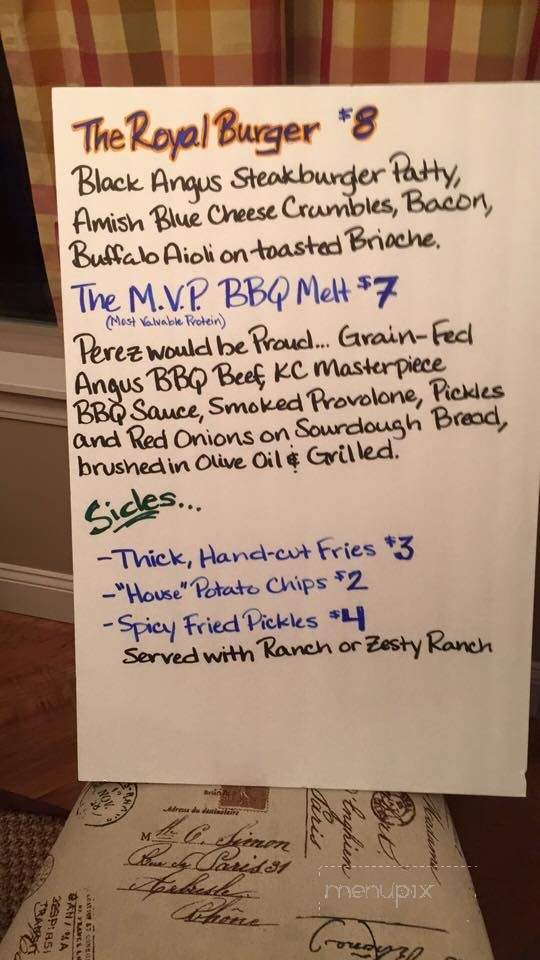 The Royal Burger $8
Black Angus Steakburger Patty,
Amish Blue Cheese Crumbles, Bacon,
Buffalo Aioli on toasted Brioche.
The M.V.P. BBQ Melt $7
(Most Valuable Protein)
Perez would be Proud... Grain-Fed
Angus BBQ Beef, KC Masterpiece
BBQ Sauce, Smoked Provolone, Pickles
and Red Onions on Sourdough Bread,
brushed in Olive Oil & Grilled.
Sides...
-Thick, Hand-cut Fries $3
-"House" Potato Chips $2
-Spicy Fried Pickles $4
Served with Ranch or Zesty Ranch
Adresse du destinataire
M
C. Simon
Paris
Rhône
menupix